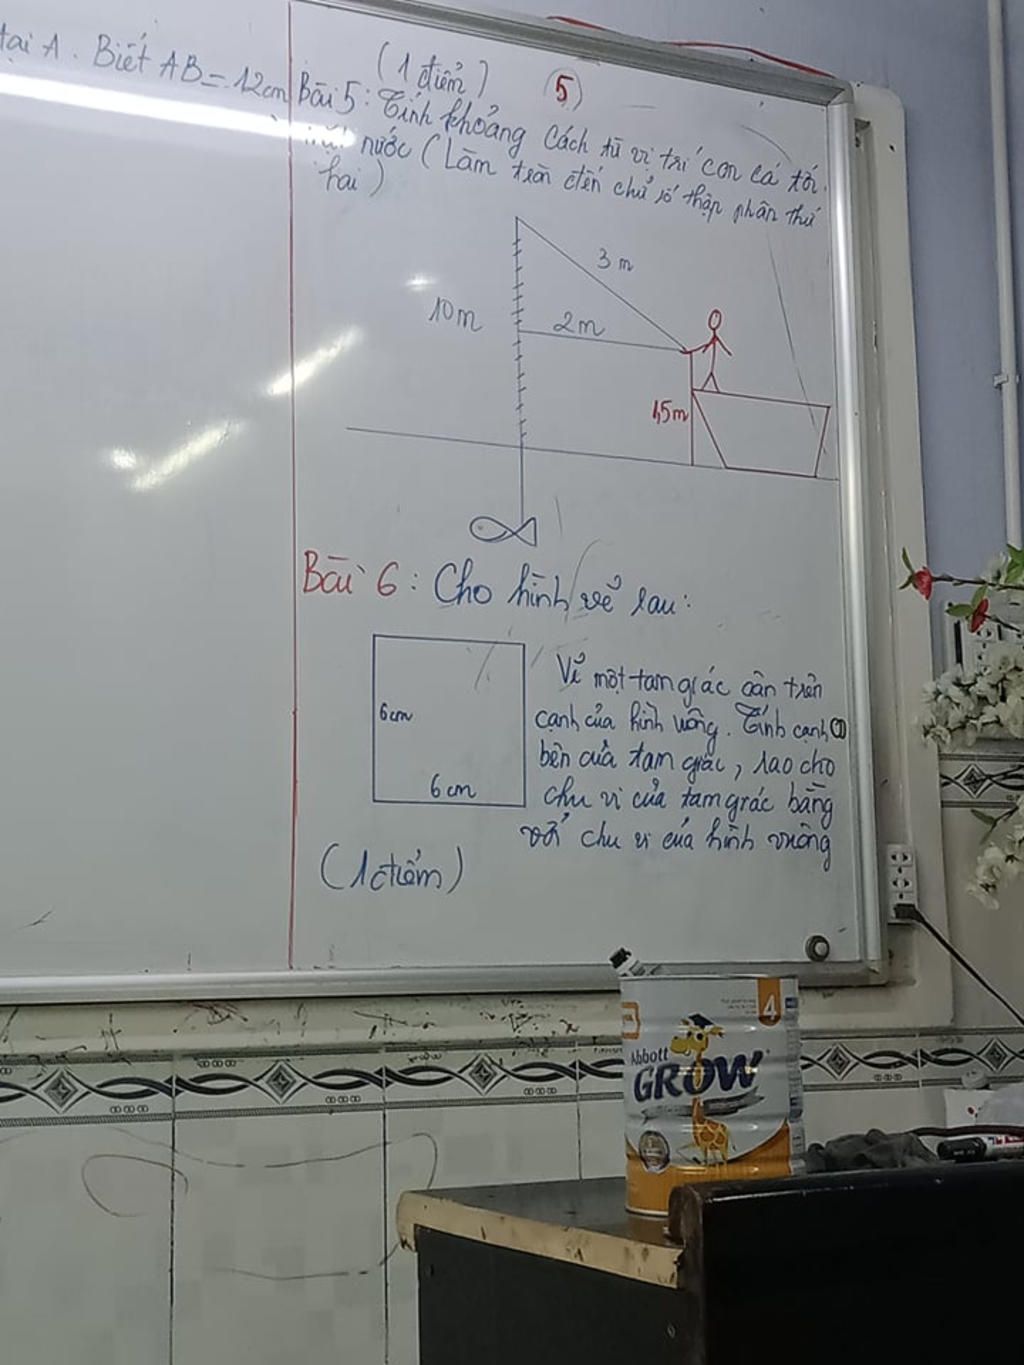 tại A. Biết AB = 12cm
(1 điểm)
5
Bài 5: Tính khoảng cách từ vị trí con cá tới
mặt nước (Làm tròn đến chữ số thập phân thứ
hai)
3 m
10m
2m
1,5m
Bài 6: Cho hình vẽ sau:
6cm
6 cm
Vẽ một tam giác cân trên
cạnh của hình vuông. Tính cạnh
bên của tam giác, sao cho
chu vi của tam giác bằng
với chu vi của hình vuông
(1 điểm)
4
Abbott
GROW